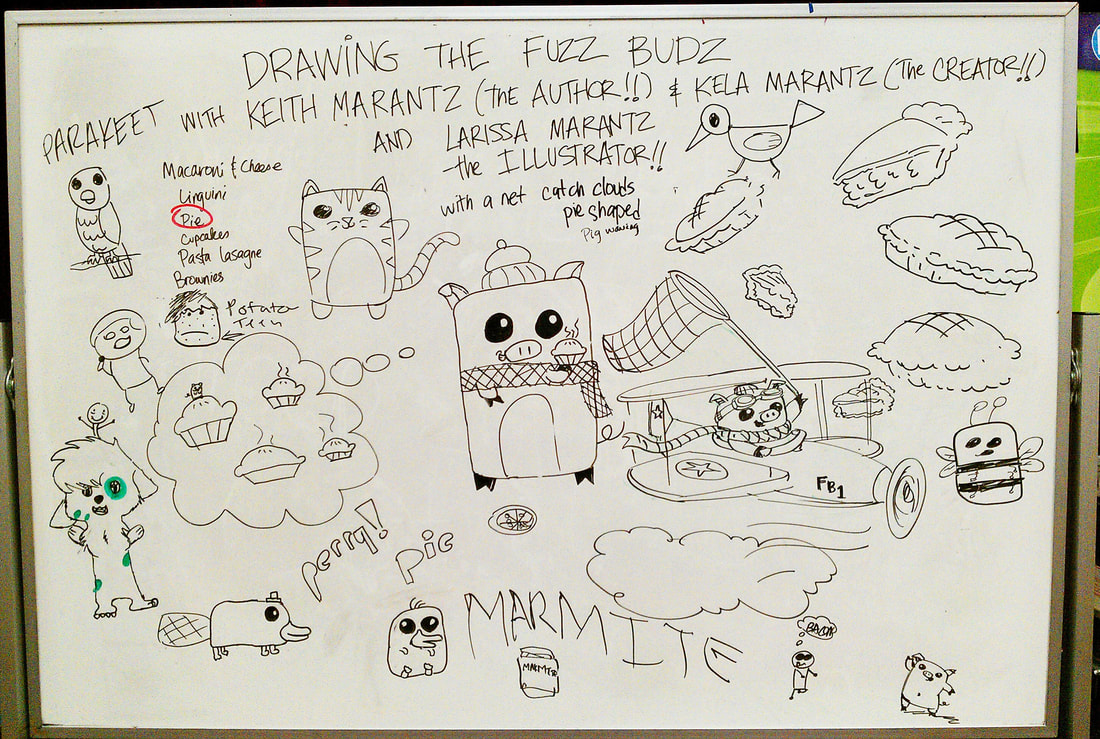 DRAWING THE FUZZ BUDZ
PARAKEET WITH KEITH MARANTZ (THE AUTHOR!!) & KELA MARANTZ (The CREATOR!!)
AND LARISSA MARANTZ
the ILLUSTRATOR!!
Macaroni & Cheese
Linguini
Pie
Cupcakes
Pasta lasagne
Brownies
with a net catch clouds
pie shaped
Pig waving
Potato
Teen
FB1
perry!
Pie
MARMITE
MARMITE
BACON